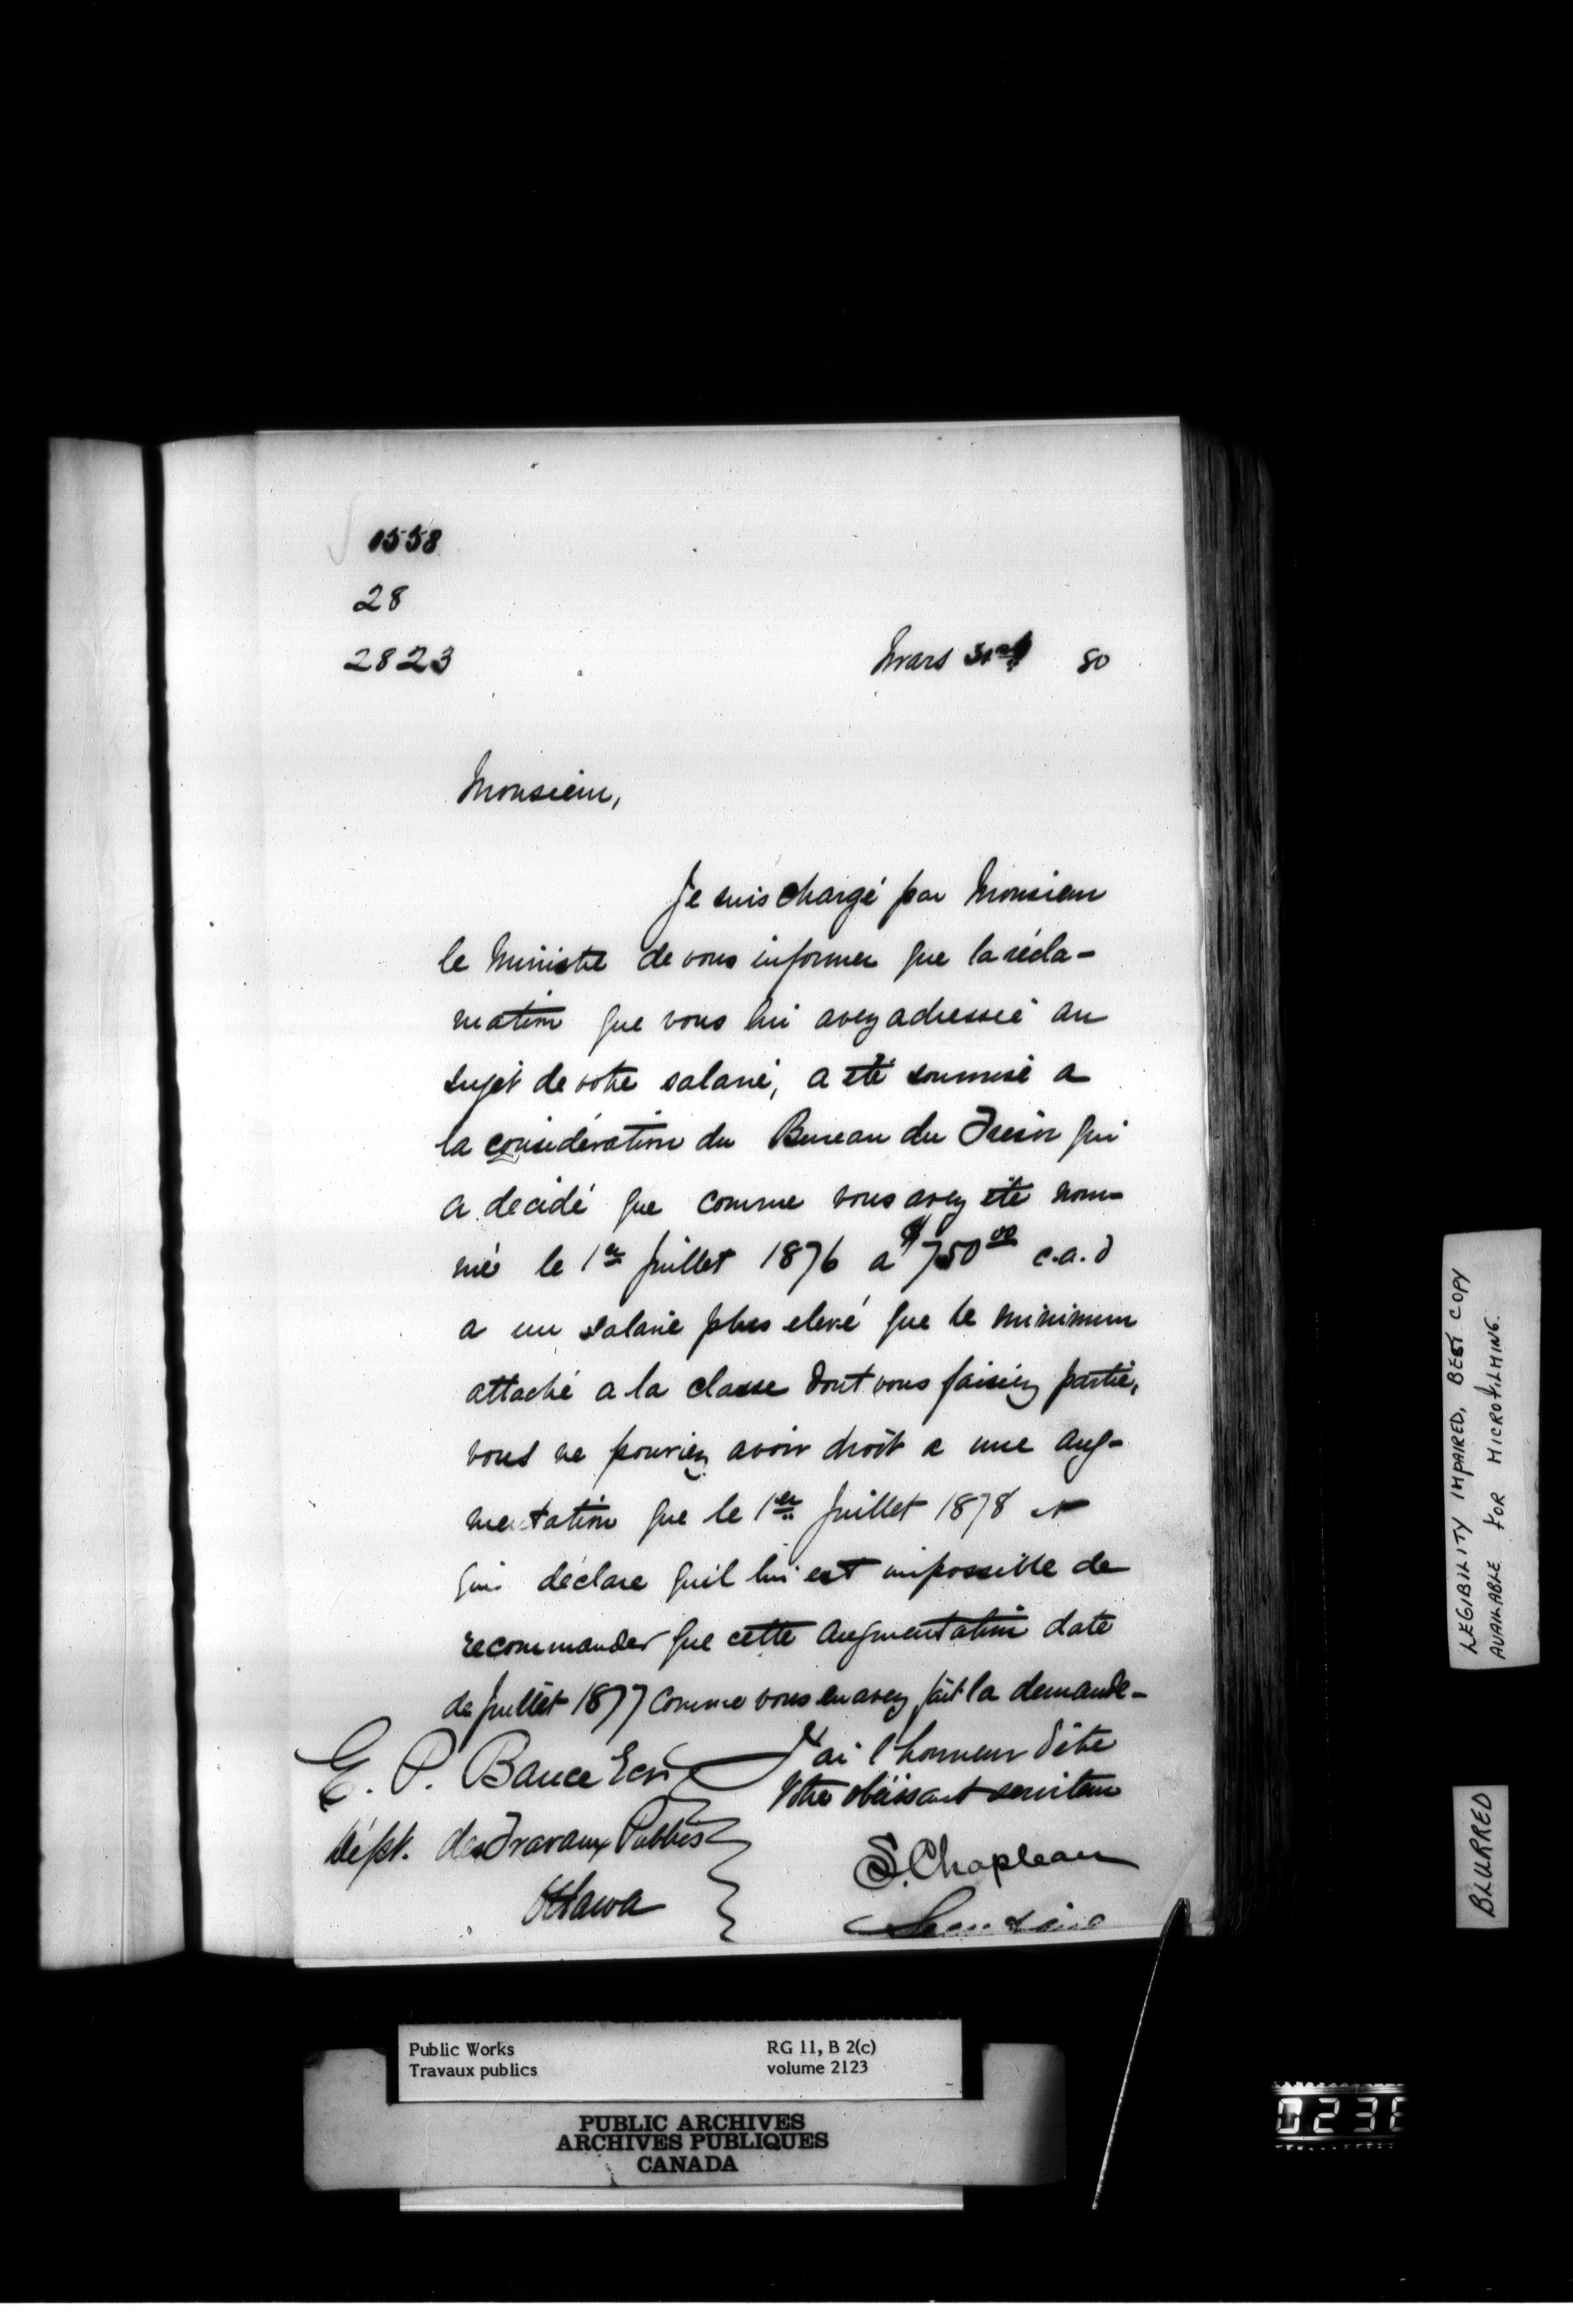 1558
28
2823
Mars 31 80
Monsieur,
Je suis chargé par Monsieur
le Ministre de vous informer que la récla-
mation que vous lui avez adressée au
sujet de votre salaire, a été soumise a
la considération du Bureau du Trésor qui
a decidé que comme vous avez été nom-
mé le 1er Juillet 1876 a $750.00 c.a.d
a un salaire plus elevé que le minimum
attaché a la classe dont vous faisiez partie,
vous ne pouviez avoir droit a une aug-
mentation que le 1er Juillet 1878 et
qui déclare qu'il lui est impossible de
recommander que cette augmentation date
de Juillet 1877 comme vous en avez fait la demande-
J'ai l'honneur d'être
Votre obéissant serviteur
S. Chapleau
E. P. Bance Ecr
Dépt. des Travaux Publics
Ottawa
Public Works
Travaux publics
RG 11, B 2(c)
volume 2123
PUBLIC ARCHIVES
ARCHIVES PUBLIQUES
CANADA
LEGIBILITY IMPAIRED, BEST COPY
AVAILABLE FOR MICROFILMING.
BLURRED